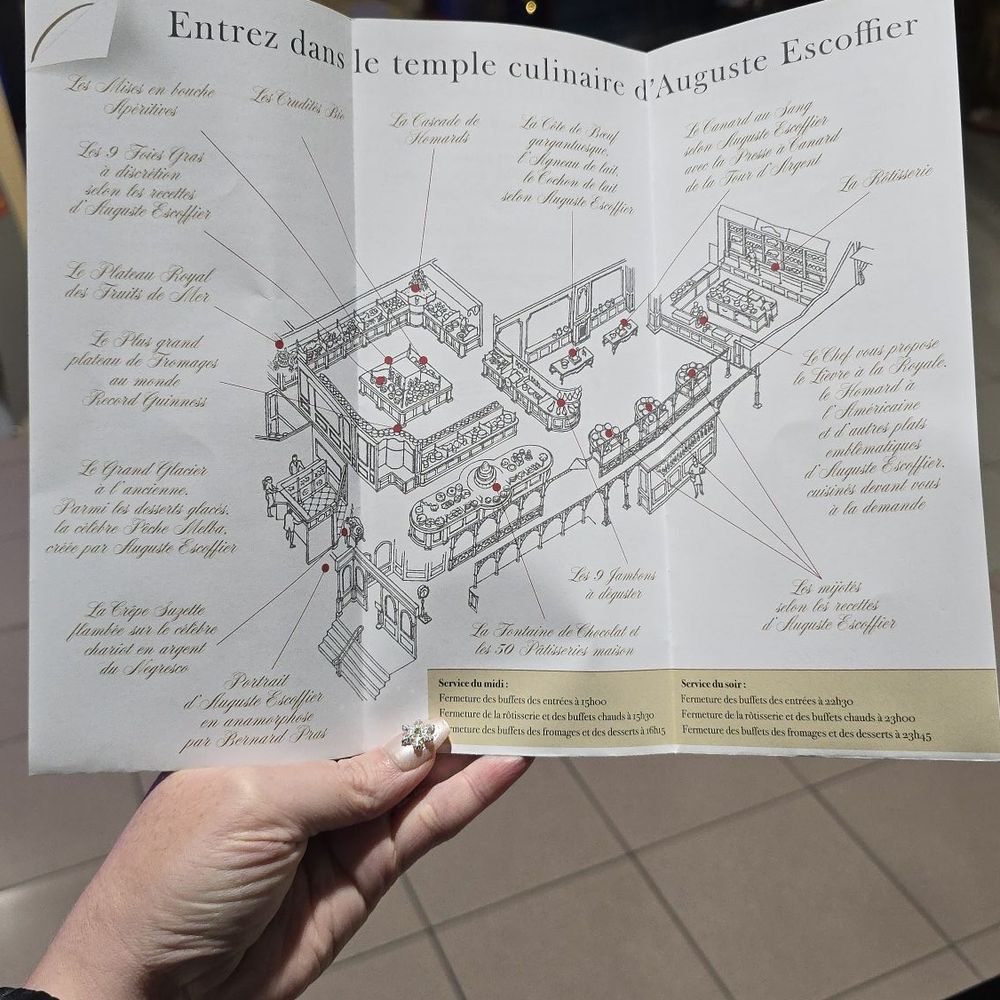 Entrez dans le temple culinaire d'Auguste Escoffier
Les Mises en bouche
Apéritives
Les Crudités Bio
La Cascade de
Homards
La Côte de Bœuf
gargantuesque,
l'Agneau de lait,
le Cochon de lait
selon Auguste Escoffier
Le Canard au Sang
selon Auguste Escoffier
avec la Presse à Canard
de la Tour d'Argent
La Rôtisserie
Les 9 Foies Gras
à discrétion
selon les recettes
d'Auguste Escoffier
Le Plateau Royal
des Fruits de Mer
Le Plus grand
plateau de Fromages
au monde
Record Guinness
Le Grand Glacier
à l'ancienne.
Parmi les desserts glacés,
la célèbre Pêche Melba,
créée par Auguste Escoffier
La Crêpe Suzette
flambée sur le célèbre
chariot en argent
du Negresco
Portrait
d'Auguste Escoffier
en anamorphose
par Bernard Pras
Le Chef vous propose
le Lièvre à la Royale,
le Homard à
l'Américaine
et d'autres plats
emblématiques
d'Auguste Escoffier,
cuisinés devant vous
à la demande
Les 9 Jambons
à déguster
La Fontaine de Chocolat et
les 50 Pâtisseries maison
Les mijotés
selon les recettes
d'Auguste Escoffier
Service du midi :
Fermeture des buffets des entrées à 15h00
Fermeture de la rôtisserie et des buffets chauds à 15h30
Fermeture des buffets des fromages et des desserts à 16h15
Service du soir :
Fermeture des buffets des entrées à 22h30
Fermeture de la rôtisserie et des buffets chauds à 23h00
Fermeture des buffets des fromages et des desserts à 23h45